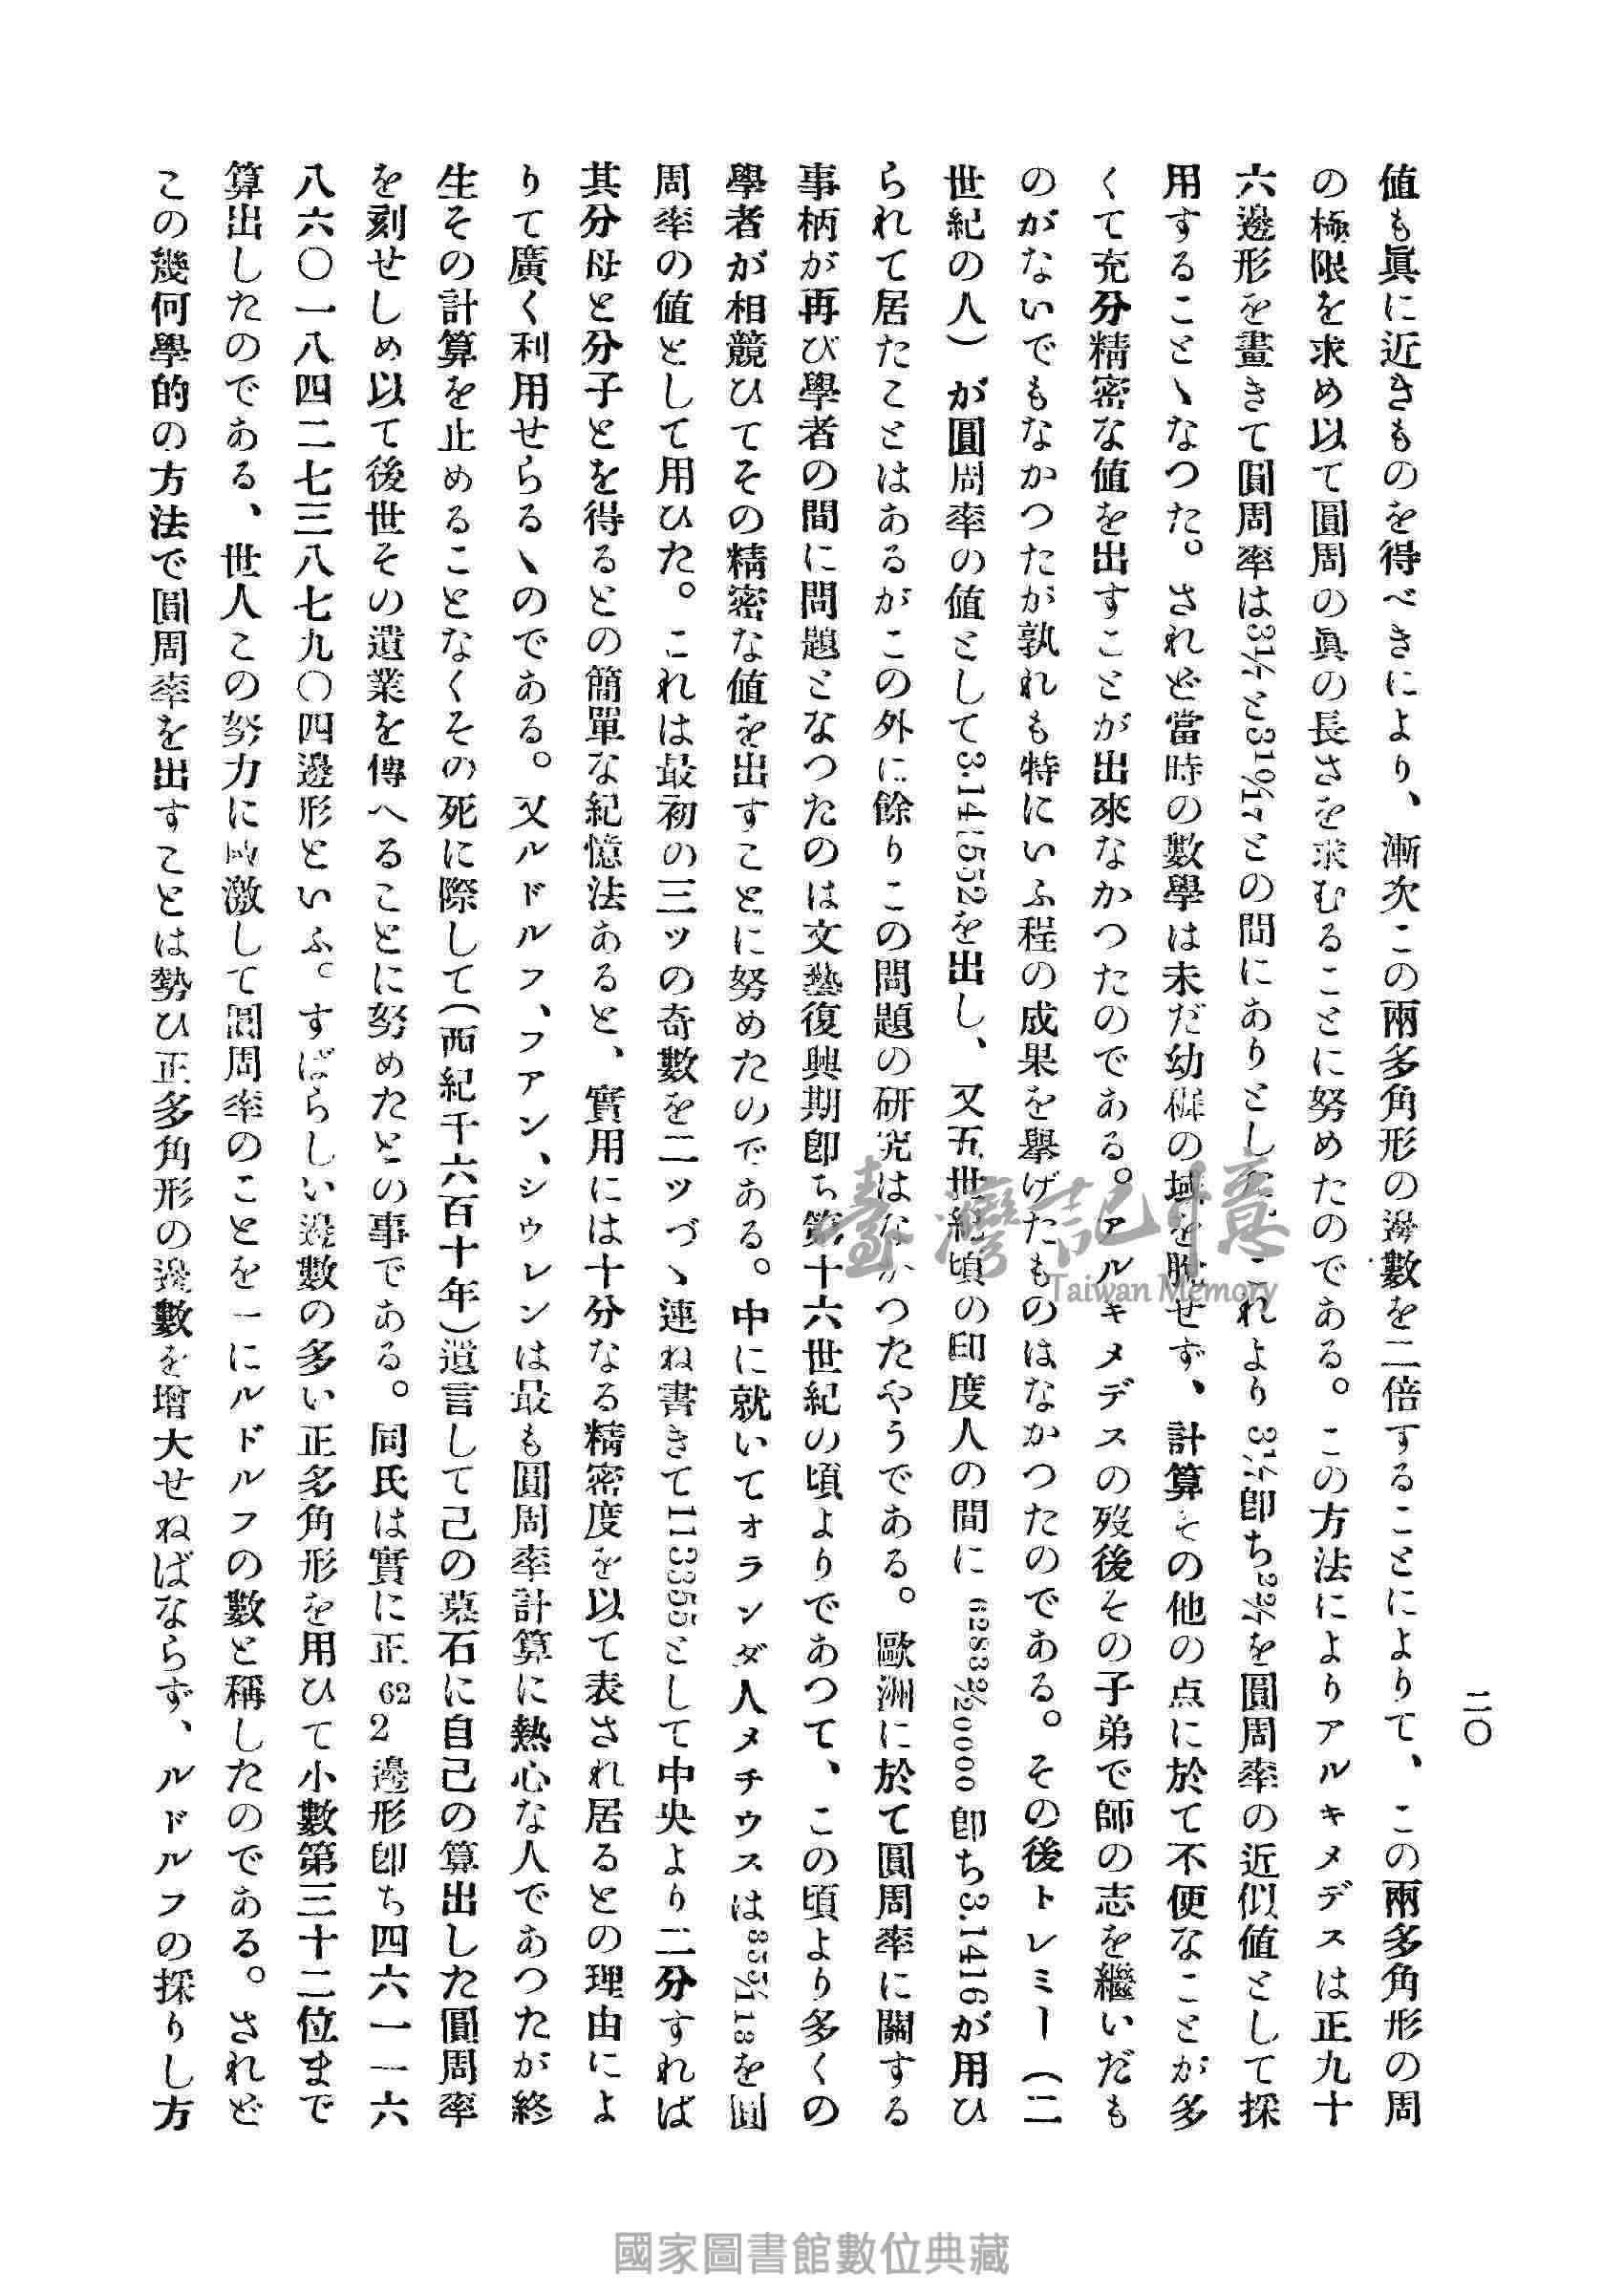 二〇
値も眞に近きものを得べきにより、漸次この兩多角形の邊數を二倍することによりて、この兩多角形の周
の極限を求め以て圓周の眞の長さを求むることに努めたのである。この方法によりアルキメデスは正九十
六邊形を畫きて圓周率は31/7と310/17との間にありとし これより31/7卽ち22/7を圓周率の近似値として採
用することゝなつた。されど當時の數學は未だ幼稚の域を脫せず、計算その他の点に於て不便なことが多
くて充分精密な値を出すことが出來なかつたのである。アルキメデスの歿後その子弟で師の志を繼いだも
のがないでもなかつたが孰れも特にいふ程の成果を擧げたものはなかつたのである。その後トレミー(二
世紀の人)が圓周率の値として3.141552を出し、又五世紀頃の印度人の間に 62832/20000 卽ち3.1416が用ひ
られて居たことはあるがこの外に餘りこの問題の研究はなかつたやうである。歐洲に於て圓周率に關する
事柄が再び學者の間に問題となつたのは文藝復興期卽ち第十六世紀の頃よりであつて、この頃より多くの
學者が相競ひてその精密な値を出すことに努めたのである。中に就いてオランダ人メチウスは355/113を圓
周率の値として用ひた。これは最初の三ッの奇數を二ッづゝ連ね書きて113355として中央より二分すれば
其分母と分子とを得るとの簡單な紀憶法あると、實用には十分なる精密度を以て表され居るとの理由によ
りて廣く利用せらるゝのである。又ルドルフ、フアン、シウレンは最も圓周率計算に熱心な人であつたが終
生その計算を止めることなくその死に際して(西紀千六百十年)遺言して己の墓石に自己の算出した圓周率
を刻せしめ以て後世その遺業を傳へることに努めたとの事である。同氏は實に正 2 62 邊形卽ち四六一一六
八六〇一八四二七三八七九〇四邊形といふ。すばらしい邊數の多い正多角形を用ひて小數第三十二位まで
算出したのである、世人この努力に感激して圓周率のことを一にルドルフの數と稱したのである。されど
この幾何學的の方法で圓周率を出すことは勢ひ正多角形の邊數を增大せねばならず、ルドルフの採りし方
臺灣記憶
Taiwan Memory
國家圖書館數位典藏